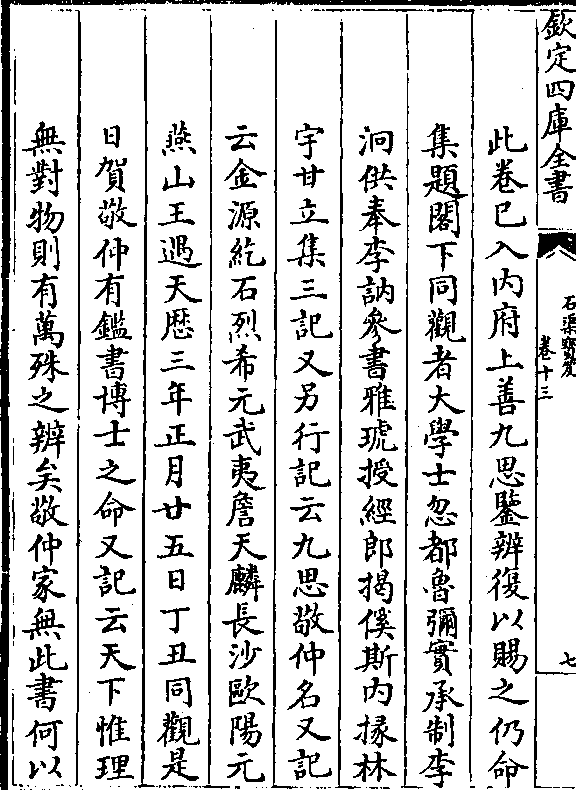 欽定四庫全書
石渠寳笈
卷十三
七
此卷已入内府上善九思鑒辨復以賜之仍命
集題閣下同觀者大學士忽都魯彌實承制李
泂供奉李訥叅書雅琥授經郎揭傒斯内掾林
宇甘立集三記又另行記云九思敬仲名又記
云金源紇石烈希元武夷詹天麟長沙歐陽元
燕山王遇天厯三年正月廿五日丁丑同觀是
日賀敬仲有鑑書博士之命又記云天下惟理
無對物則有萬殊之辨矣敬仲家無此書何以